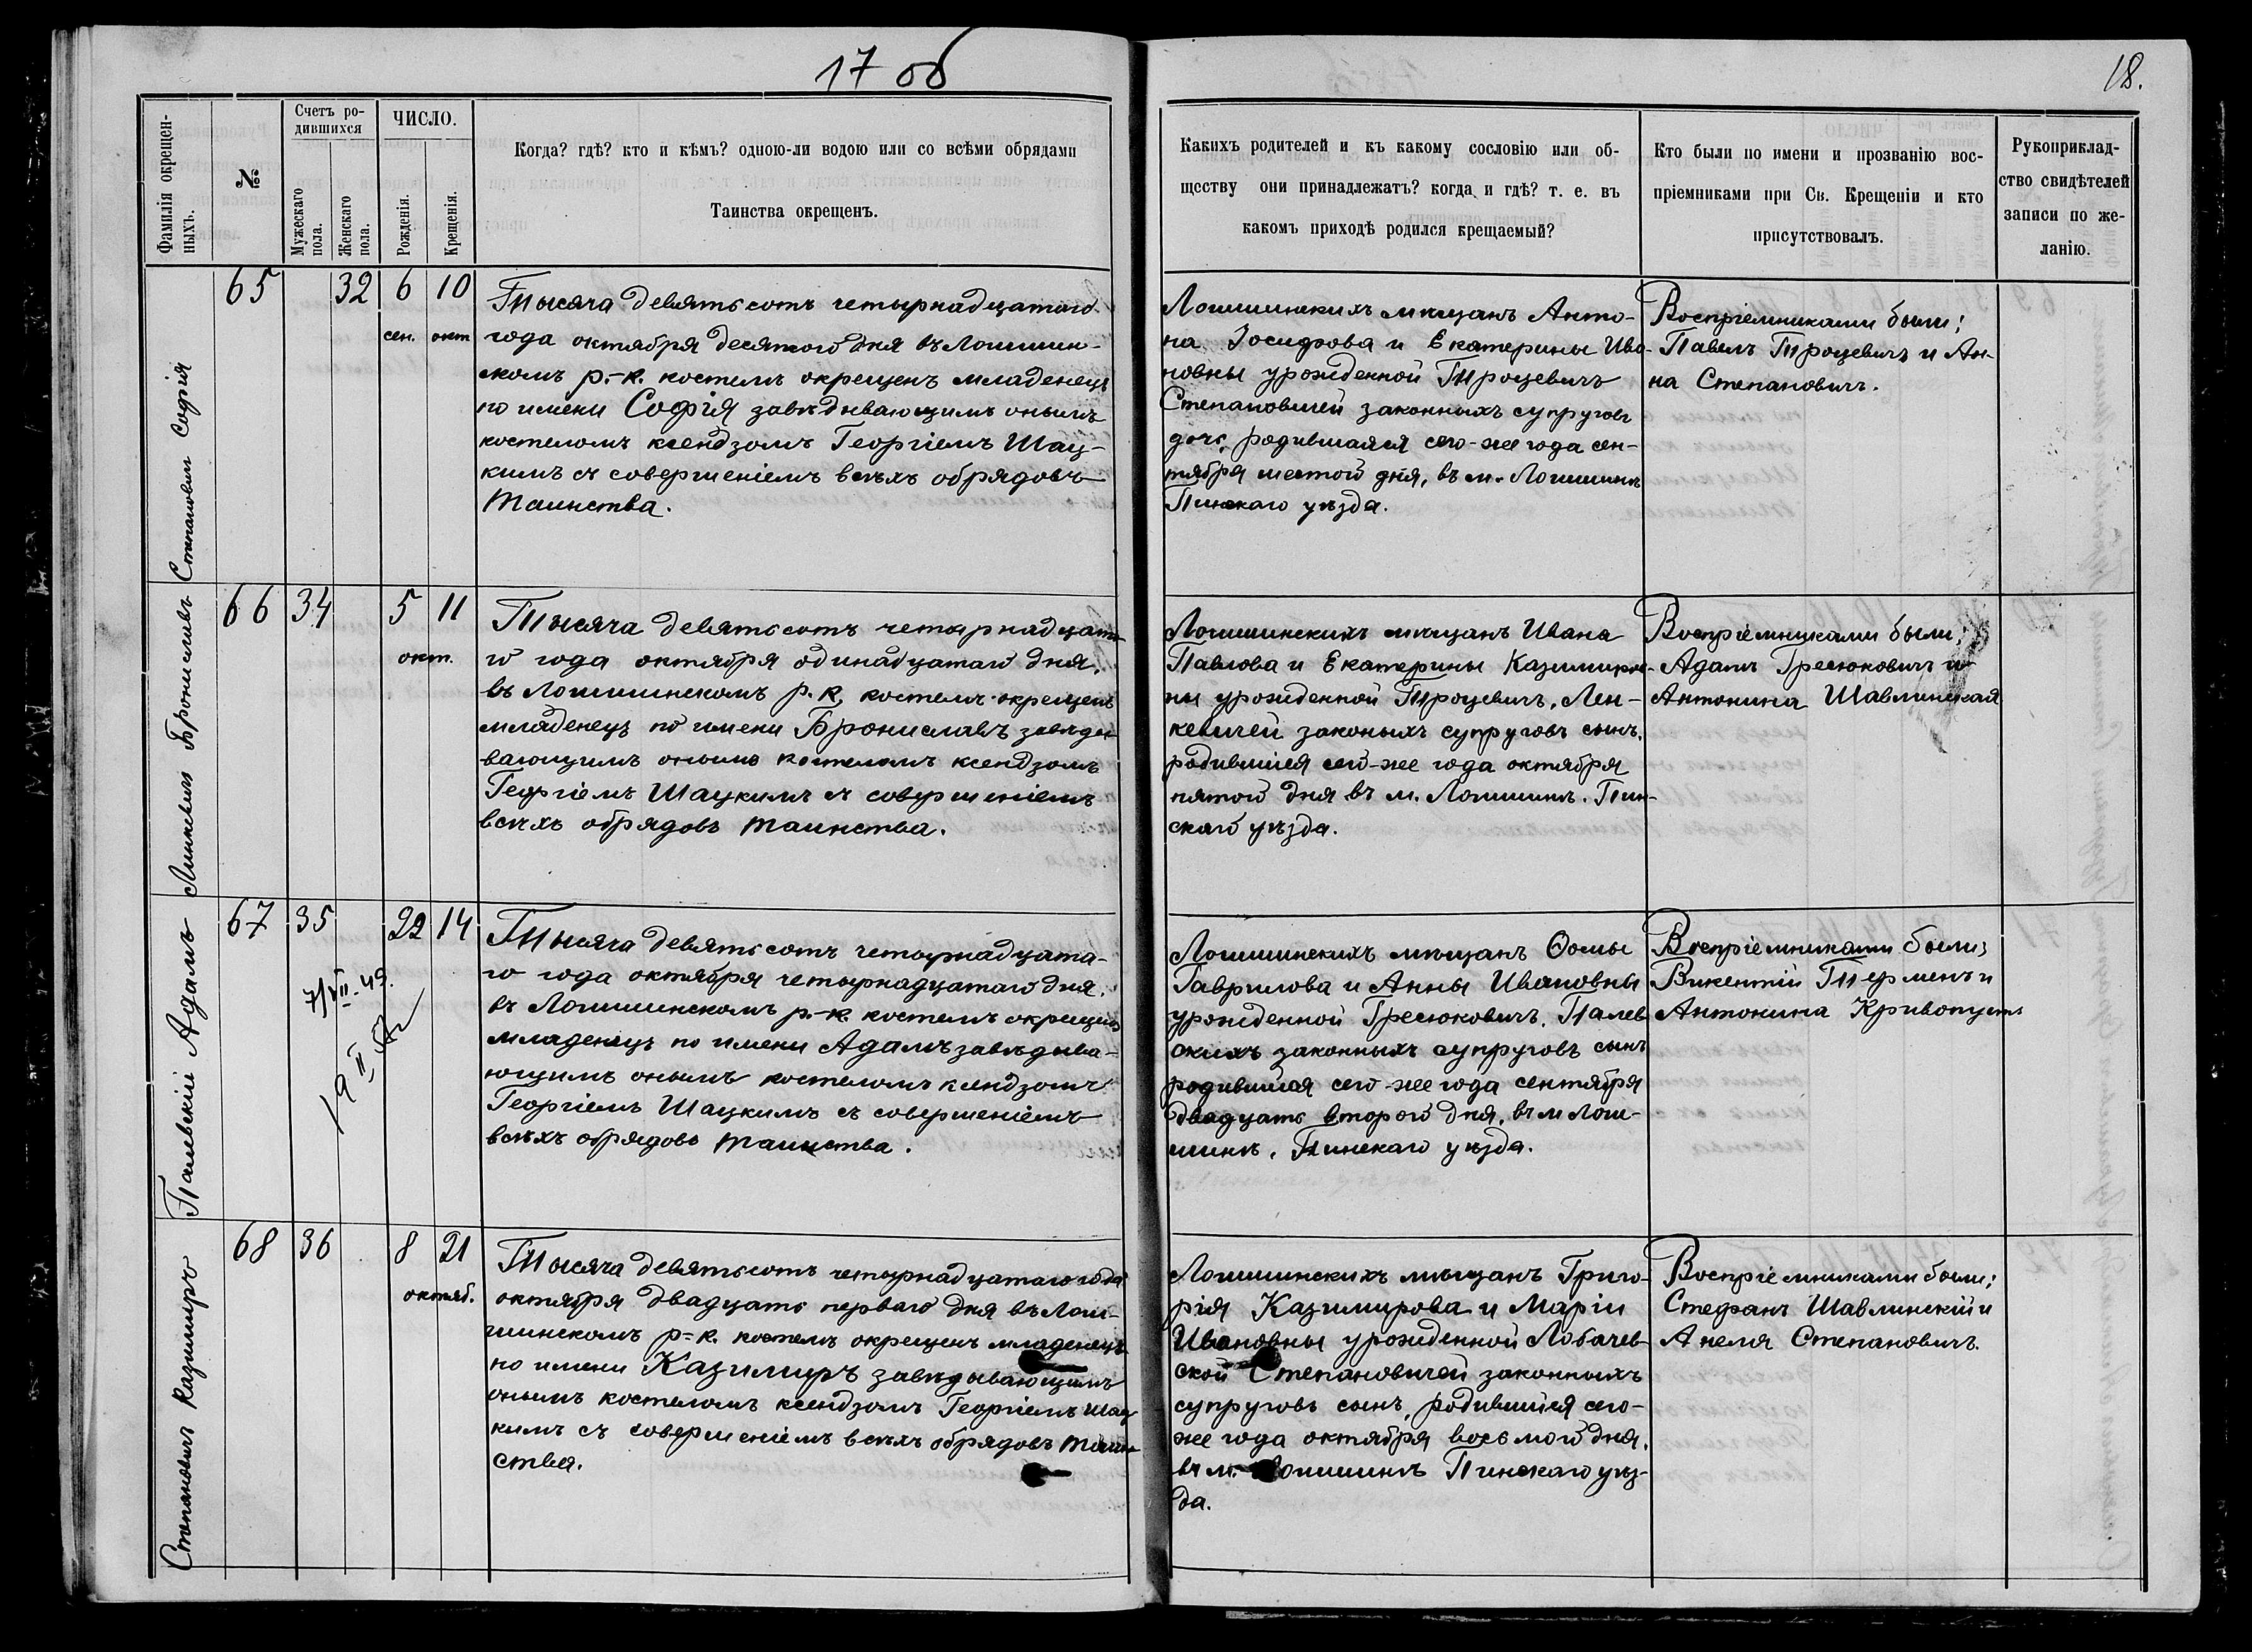 17 об
18.
Фамилія окрещен-
ныхъ.
№
Счетъ ро-
дившихся
Мужескаго
пола.
Женскаго
пола.
ЧИСЛО.
Рожденія.
Крещенія.
Когда? гдѣ? кто и кѣмъ? одною-ли водою или со всѣми обрядами
Таинства окрещенъ.
Какихъ родителей и къ какому сословію или об-
ществу они принадлежатъ? когда и гдѣ? т. е. въ
какомъ приходѣ родился крещаемый?
Кто были по имени и прозванію вос-
пріемниками при Св. Крещеніи и кто
присутствовалъ.
Рукоприклад-
ство свидѣтелей
записи по же-
ланію.
Степановичъ Софія
65 32 6 10
сен. окт
Тысяча девятьсотъ четырнадцатого
года октября десятого дня въ Логишин-
скомъ р.-к. костелѣ окрещенъ младенецъ
по имени Софія завѣдывающимъ онымъ
костеломъ ксендзомъ Георгіемъ Шац-
кимъ съ совершеніемъ всѣхъ обрядовъ
Таинства.
Логишинскихъ мѣщанъ Анто-
на Іосифова и Екатерины Ива-
новны урожденной Троцевичъ
Степановичей законныхъ супруговъ
дочь, родившаяся сего-же года сен-
тября шестой дня, въ м. Логишинѣ
Пинскаго уѣзда.
Воспріемниками были;
Павелъ Троцевичъ и Ан-
на Степановичъ.
Линкевичъ Брониславъ
66 34 5 11
окт.
Тысяча девятьсотъ четырнадцата-
го года октября одинадцатаго дня,
въ Логишинскомъ р. к. костелѣ окрещенъ
младенецъ по имени Брониславъ завѣды-
вающимъ онымъ костеломъ ксендзомъ
Георгіемъ Шацкимъ съ совершеніемъ
всѣхъ обрядовъ таинства.
Логишинскихъ мѣщанъ Ивана
Павлова и Екатерины Казимиров-
ны урожденной Троцевичъ, Лин-
кевичей законыхъ супруговъ сынъ,
родившійся сего-же года октября
пятой дня въ м. Логишинѣ. Пин-
скаго уѣзда.
Воспріемниками были;
Адамъ Гресюковичъ и
Антонина Шавлинская
Палевскій Адамъ
67 35 22 14
7/VII-49.
19 II
Тысяча девятьсотъ четырнадцата-
го года октября четырнадцатаго дня,
въ Логишинскомъ р.-к. костелѣ окрещенъ
младенецъ по имени Адамъ завѣдыва-
ющимъ онымъ костеломъ ксендзомъ
Георгіемъ Шацкимъ съ совершеніемъ
всѣхъ обрядовъ таинства.
Логишинскихъ мѣщанъ Ѳомы
Гаврилова и Анны Ивановны
урожденной Гресюковичъ, Палев
скихъ законныхъ супруговъ сынъ
родившійся сего-же года сентября
двадцать второй дня, въ м Логи-
шинѣ, Пинскаго уѣзда.
Воспріемниками были;
Викентій Терменъ и
Антонина Кривопустъ
Степановичъ Казимиръ
68 36 8 21
октяб.
Тысяча девятьсотъ четырнадцатаго года
октября двадцать перваго дня въ Логи-
шинскомъ р-к. костелѣ окрещенъ младенецъ
по имени Казимиръ завѣдывающимъ
онымъ костеломъ ксендзомъ Георгіемъ Шац
кимъ съ совершеніемъ всѣхъ обрядовъ таин-
ства.
Логишинскихъ мѣщанъ Григо-
рія Казимирова и Маріи
Ивановны урожденной Лобачев-
ской Степановичей законныхъ
супруговъ сынъ, родившійся сего-
же года октября восьмой дня,
въ м. Логишинѣ Пинскаго уѣз-
да.
Воспріемниками были;
Стефанъ Шавлинскій и
Анеля Степановичъ.